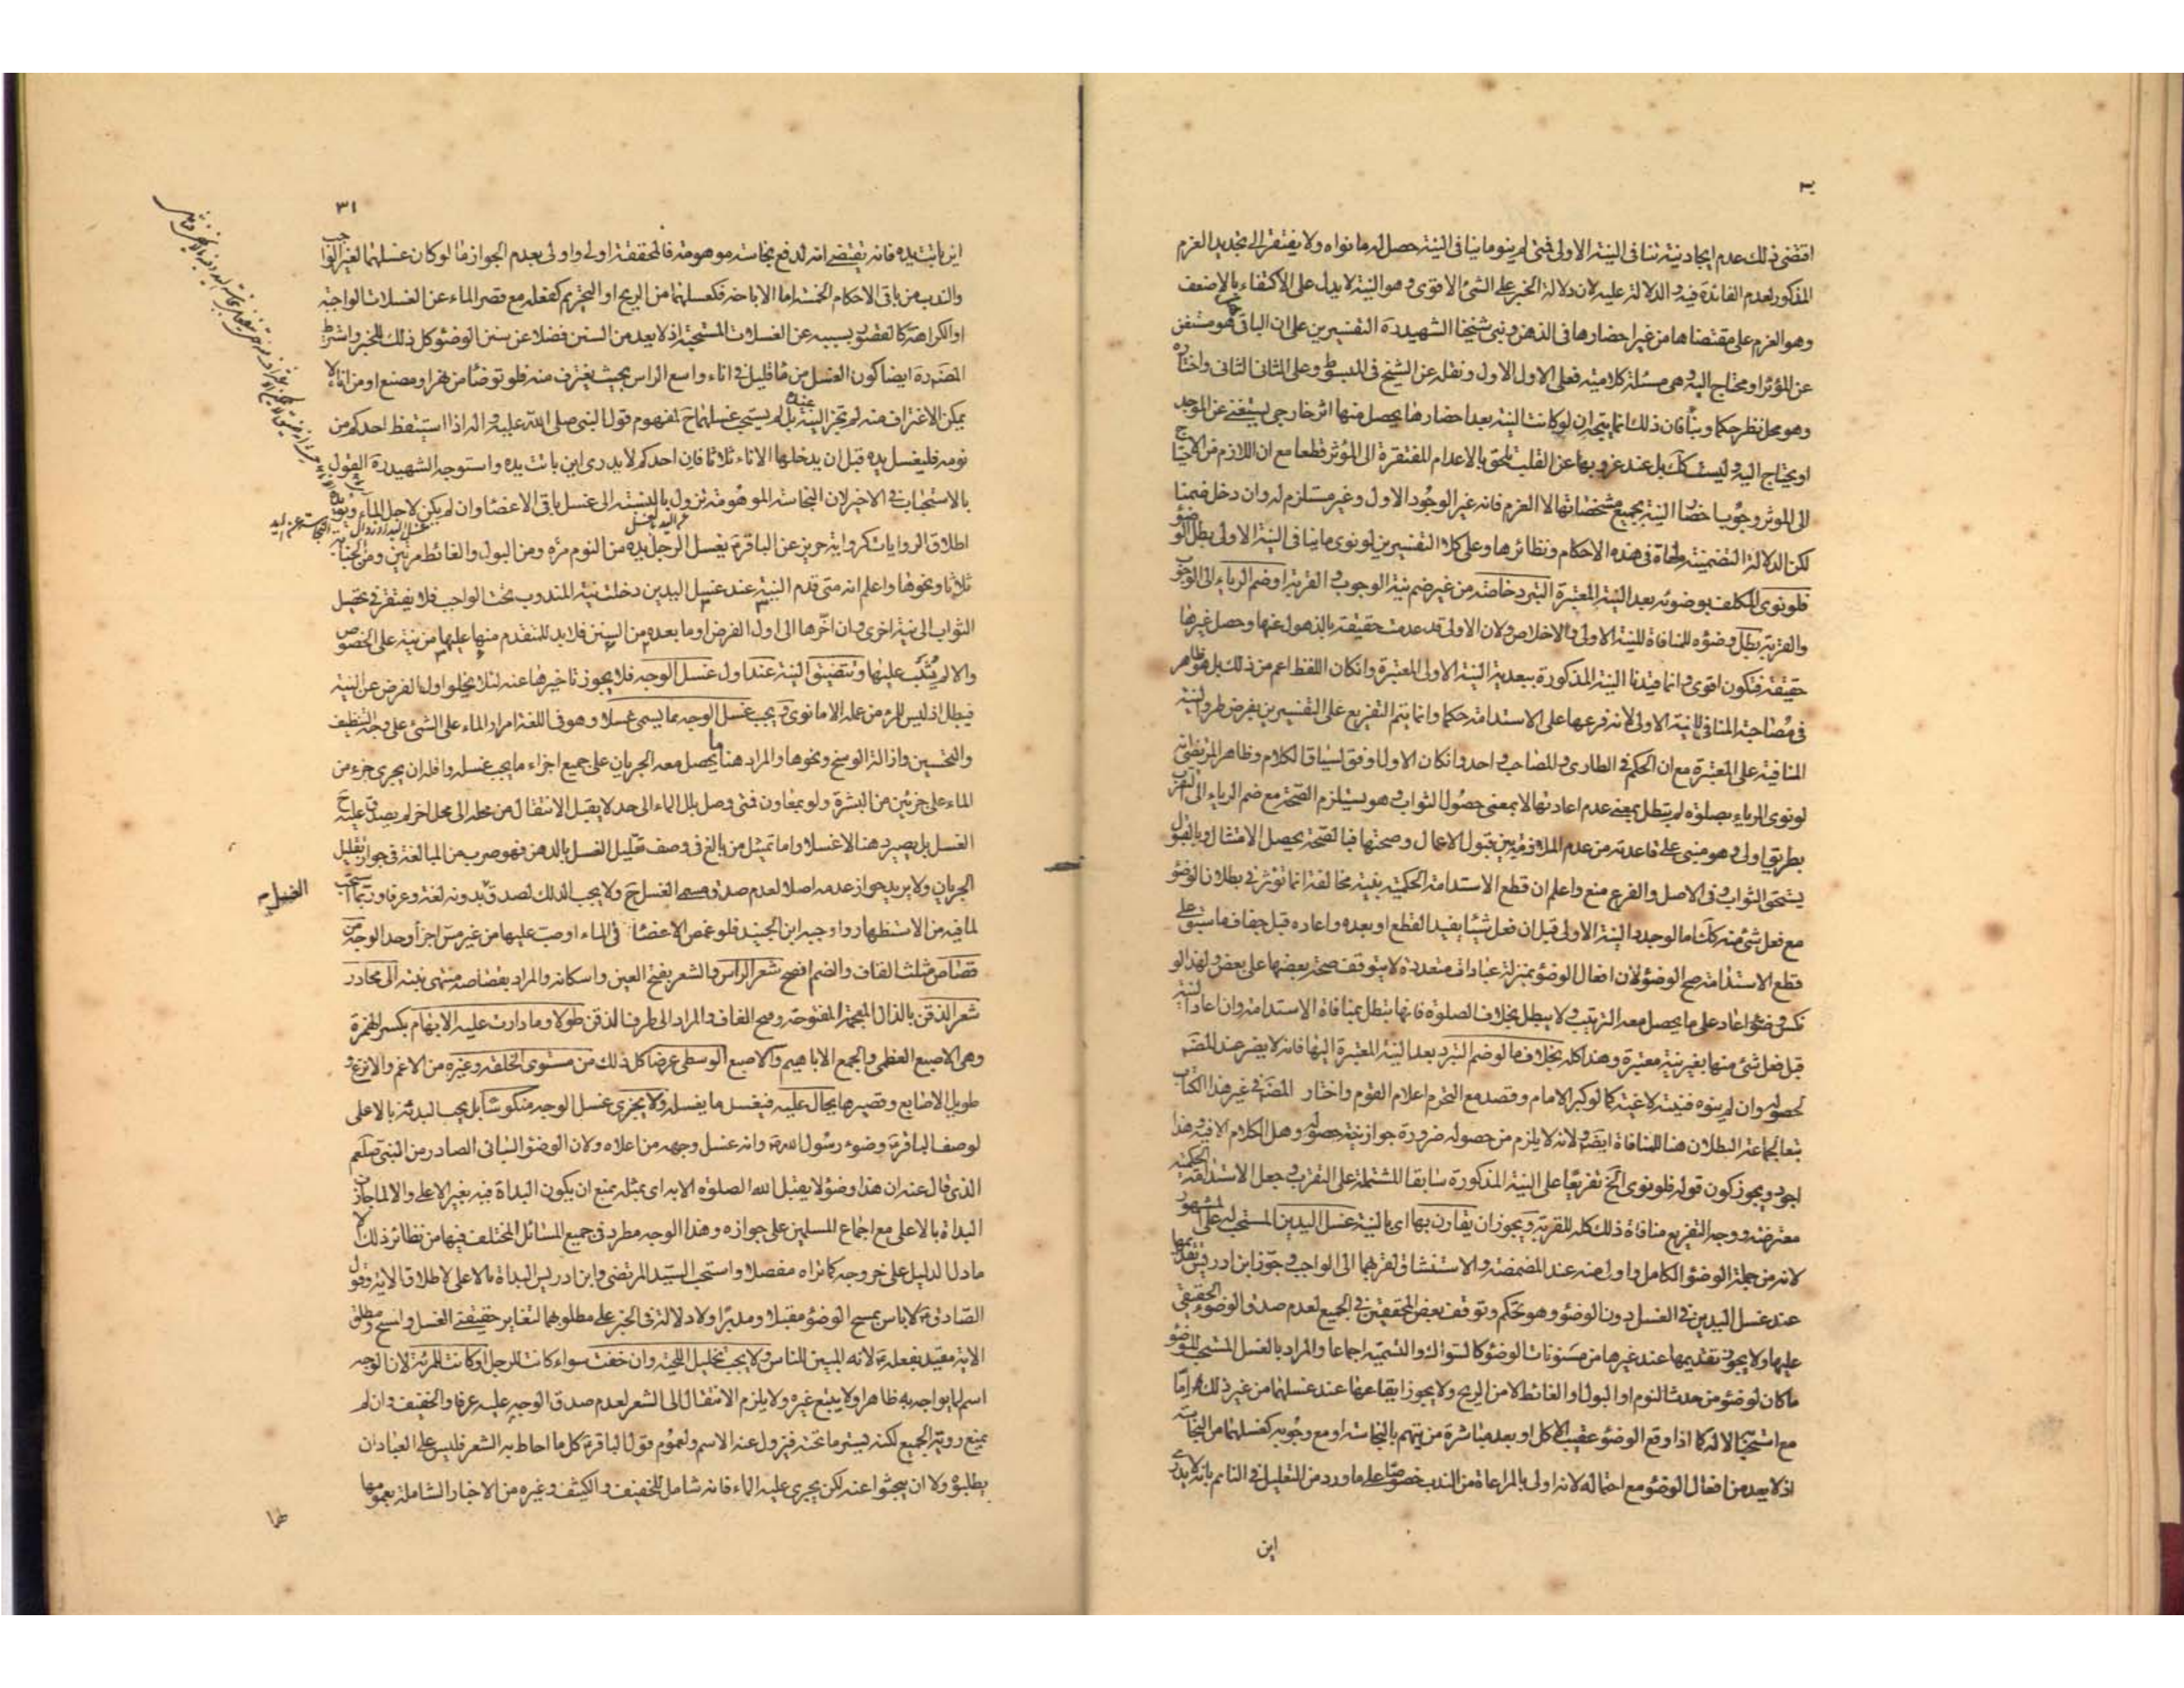 اقتضى ذلك عدم ايجاد نية تنافى النية الاولى فمتى لم ينو ما ينافى النية حصل له ما نواه ولا يفتقر الى تجديد العزم
المذكور لعدم الفائدة فيه و الدلالة عليه لان دلالة الخبر على الشئ الاقوى و هو النية لا يدل على الاكتفاء بالاضعف
وهو العزم على مقتضاها من غير احضارها فى الذهن و بنى شيخنا الشهيد ره التفسيرين على ان الباقى هو مستغن
عن المؤثر او محتاج اليه و هى مسئلة كلامية فعلى الاول الاول و نقله عن الشيخ فى المبسوط وعلى الثانى الثانى واختاره
وهو محل نظر حكما وبناء فان ذلك انما يتجه ان لو كانت النية بعد احضارها يحصل منها اثر خارجى يستغنى عن الموجد
او يحتاج اليه و ليست كك بل عند عزوبها عن القلب تلحق بالاعدام المفتقرة الى المؤثر قطعا مع ان اللازم من الاحتياج
الى المؤثر وجوب احضار النية بجميع مشخصاتها لا العزم فانه غير الوجود الاول وغير مستلزم له وان دخل ضمنا
لكن الدلالة التضمنية ملغاة فى هذه الاحكام ونظائرها وعلى كلا التفسيرين لو نوى ما ينافى النية الاولى بطل الوضوء
فلو نوى المكلف بوضوئه بعد النية المعتبرة التبرد خاصة من غير ضم نية الوجوب و القربة او ضم الرياء الى الوجوب
والقربة بطل وضوؤه للمنافاة للنية الاولى و الاخلاص ولان الاولى قد عدمت حقيقته بالذهول عنها وحصل غيرها
حقيقة فتكون اقوى و انما قيدنا النية المذكورة ببعدية النية الاولى المعتبرة وان كان اللفظ اعم من ذلك بل هو ظاهر
فى مصاحبة المنافى للنية الاولى لانه فرعها على الاستدامة حكما وانما يتم التفريع على التفسيرين بفرض طرو النية
المنافية على المعتبرة مع ان الحكم فى الطارى و المصاحب واحد وان كان الاول اوفق لسياق الكلام وظاهر المرتضى انه
لو نوى الرياء بصلوته لم تبطل بمعنى عدم اعادتها لا بمعنى حصول الثواب و هو يستلزم الصحة مع ضم الرياء الى التقرب
بطريق اولى و هو مبنى على قاعدته من عدم الملازمة بين قبول الاعمال وصحتها فبالصحة يحصل الامتثال وبالقبول
يستحق الثواب و فى الاصل والفرع منع واعلم ان قطع الاستدامة الحكمية بنية مخالفة انما تؤثر فى بطلان الوضوء
مع فعل شئ منه كك اما لو جدد النية الاولى قبل ان فعل شيئا يفيد القطع او بعده واعاده قبل جفاف ما سبق على
قطع الاستدامة صح الوضوء لان افعال الوضوء بمنزلة عبادات متعددة لا يتوقف صحة بعضها على بعض و لهذا لو
نكس وضوء اعاد على ما يحصل معه الترتيب و لا يبطل بخلاف الصلوة فانها تبطل بمنافاة الاستدامة وان اعاد النية
قبل فعل شئ منها بغير نية معتبرة وهذا كله بخلاف ما لو ضم التبرد بعد النية المعتبرة اليها فانه لا يضر عند المصنف
لحصوله وان لم ينوه فنيته لاغية كما لو كبر الامام وقصد مع التحرم اعلام القوم واختار المصنف فى غير هذا الكتاب
تبعا لجماعة البطلان هنا للمنافاة ايضا و لانه لا يلزم من حصوله ضرورة جواز نية حصوله وهل الكلام الا فيه و هذا
اجود ويجوز كون قوله فلو نوى الخ تفريعا على النية المذكورة سابقا المشتملة على التقرب و جعل الاستدامة الحكمية
معترضة و وجه التفريع منافاة ذلك كله للقربة و يجوز ان يقارن بها اى بالنية غسل اليدين المستحب له على المشهور
لانه من جملة الوضوء الكامل و اولى منه عند المضمضة و الاستنشاق لقربهما الى الواجب و جوز ابن ادريس تقديمها
عند غسل اليدين فى الغسل دون الوضوء وهو تحكم وتوقف بعض المحققين فى الجميع لعدم صدق الوضوء الحقيقى
عليها ولا يجوز تقديمها عند غيرها من مسنونات الوضوء كالسواك و التسمية اجماعا والمراد بالغسل المستحب للوضوء
ما كان لوضوء من حدث النوم او البول او الغائط لا من الريح ولا يجوز ايقاعها عند غسلهما من غير ذلك امّا
مع استحبابه لا له كما اذا وقع الوضوء عقيب الاكل او بعد مباشرة من يتهم بالنجاسة او مع وجوبه كغسلهما من النجاسة
اذ لا يعد من افعال الوضوء مع احتماله لانه اولى بالمراعاة من الندب خصوصا على ما ورد من التعليل فى النائم بانه لا يدرى
اين
٣١
اين باتت يده فانه يقتضى انه لدفع نجاسة موهومة فالمحققة اولى واولى بعدم الجواز ما لو كان غسلهما لغير الواجب
والندب من باقى الاحكام الخمسة اما الاباحة فكغسلهما من الريح او التحريم كفعله مع قصر الماء عن الغسلات الواجبة
او الكراهة كالقصور بسببه عن الغسلات المستحبة اذ لا يعد من السنن فضلا عن سنن الوضوء كل ذلك للخبر واشترط
المصنف ره ايضا كون الغسل من ماء قليل فى اناء واسع الراس بحيث يغترف منه فلو توضأ من نهر او مصنع او من اناء لا
يمكن الاغتراف منه لم تجز النية عنده بل لم يستحب غسلهما ح لمفهوم قول النبى صلى الله عليه و اله اذا استيقظ احدكم من
نومه فليغسل يده قبل ان يدخلها الاناء ثلاثا فان احدكم لا يدرى اين باتت يده واستوجه الشهيد ره القول
بالاستحباب فى الاخير لان النجاسة الموهومة تزول بالنسبة الى غسل باقى الاعضاء وان لم يكن لاجل الماء ويؤيده
اطلاق الروايات كرواية حريز عن الباقر ع يغسل الرجل يده من النوم مرة ومن البول والغائط مرتين ومن الجنابة
ثلاثا ونحوها واعلم انه متى قدم النية عند غسل اليدين دخلت نية المندوب تحت الواجب فلا يفتقر فى تحصيل
الثواب الى نية اخرى و ان اخّرها الى اول الفرض او ما بعده من السنن فلابد للمتقدم منها عليها من نية على الخصوص
والا لم يُثَب عليها وتتضيق النية عند اول غسل الوجه فلا يجوز تاخيرها عنه لئلا يخلو اول الفرض عن النية
فيبطل اذ ليس للمرء من عمله الا ما نوى و يجب غسل الوجه بما يسمى غسلا وهو فى اللغة امرار الماء على الشئ على وجه التنظيف
والتحسين وازالة الوسخ ونحوها والمراد هنا ما يحصل معه الجريان على جميع اجزاء ما يجب غسله واقله ان يجرى جزء من
الماء على جزئين من البشرة ولو بمعاون فمتى وصل بلل الماء الى حد لا يقبل الانتقال من محله الى محل اخر لم يصدق عليه ح
الغسل بل يصير دهنا لا غسلا واما تمثيل من بالغ فى وصف تقليل الغسل بالدهن فهو ضرب من المبالغة فى جواز تقليل
الجريان ولا يريد جواز عدمه اصلا لعدم صدق مسمى الغسل ح ولا يجب الدلك لصدقه بدونه لغة وعرفا وربما استحب
لما فيه من الاستظهار و اوجبه ابن الجنيد فلو غمس الاعضاء فى الماء او صب عليها من غير مس اجزأ وحد الوجه من
قصاص مثلث القاف والضم افصح شعر الراس و الشعر بفتح العين واسكانه والمراد بقصاصه منتهى نبته الى محادر
شعر الذقن بالذال المعجمة المفتوحة وفتح القاف والمراد الى طرف الذقن طولا وما دارت عليه الابهام بكسر الهمزة
وهى الاصبع العظمى والجمع الاباهيم والاصبع الوسطى عرضا كل ذلك من مستوى الخلقة وغيره من الاغم والانزع و
طويل الاصابع وقصيرها يحال عليه فيغسل ما يغسله ولا يجزى غسل الوجه منكوسا بل يجب البدئة بالاعلى
لوصف الباقر ع وضوء رسول الله ص وانه غسل وجهه من اعلاه ولان الوضوء البيانى الصادر من النبى صلعم
الذى قال عنه ان هذا وضوء لا يقبل الله الصلوة الا به اى بمثله يمنع ان يكون البداة فيه بغير الاعلى والا لما جازت
البداة بالاعلى مع اجماع المسلمين على جوازه وهذا الوجه مطرد فى جميع المسائل المختلف فيها من نظائر ذلك الا
ما دل الدليل على خروجه كما تراه مفصلا واستحب السيد المرتضى وابن ادريس البداة بالاعلى لاطلاق الاية وقول
الصادق ع لا باس بمسح الوضوء مقبلا ومدبرا ولا دلالة فى الخبر على مطلوبهما لتغاير حقيقتى الغسل والمسح و مطلق
الاية مقيد بفعله ص لانه المبين للناس ولا يجب تخليل اللحية وان خفت سواء كانت للرجل او كانت للمرئة لان الوجه
اسم لما يواجه به ظاهرا ولا يتبع غيره ولا يلزم الانتقال الى الشعر لعدم صدق الوجه عليه عرفا والخفيف و ان لم
يمنع روية الجميع لكنه يستر ما تحته فيزول عنه الاسم ولعموم قول الباقر ع كل ما احاط به الشعر فليس على العباد ان
يطلبوه ولا ان يبحثوا عنه لكن يجرى عليه الماء فانه شامل للخفيف و الكثيف و غيره من الاخبار الشاملة بعمومها
الغسل